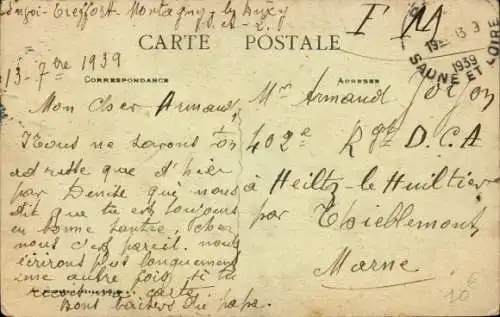 Montagny-les-Buxy
S. et L.
F M
CARTE POSTALE
CORRESPONDANCE
ADRESSE
13-7bre 1939
13
1939
SAONE ET LOIRE
Mon cher Armand,
Nous ne savons ton
adresse que d'hier
par Denise qui nous
dit que tu es toujours
en bonne santée, chez
nous c'est pareil. nous
écrirons plus longuement
une autre fois si tu
carte
Bons baisers du papa.
Mr Armand
402e Rgt D.C.A
à Heiltz-le-Huiltier
par Thiéblemont
Marne
10€